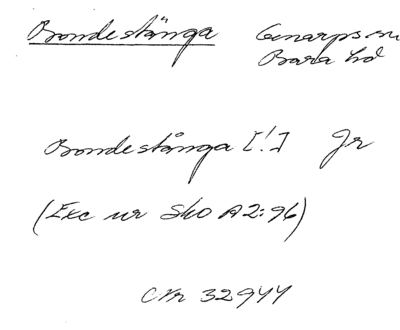 Bondestånga Genarps sn
Bara hd
Bondestånga [!] Gr
(Exc ur Sko A2:96)
CNr 32944